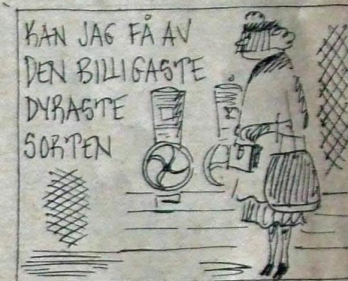 KAN JAG FÅ AV
DEN BILLIGASTE
DYRASTE
SORTEN